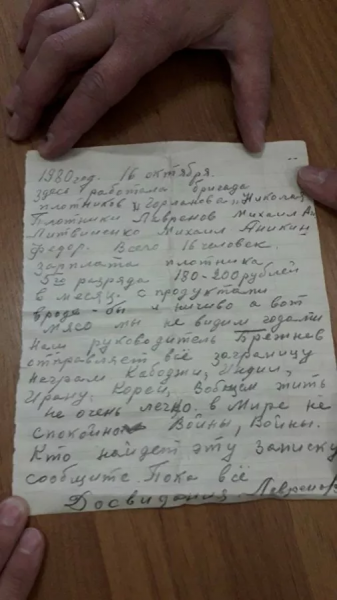 1980 год. 16 октября.
здесь работала бригада
плотников Горланова Николая
Плотники Лавронов Михаил Ан
Литвиненко Михаил Аникин
Федор. Всего 16 человек.
Зарплата плотника
5го разряда 180-200 рублей
в месяц. с продуктами
вроде-бы и ничиво а вот
мясо мы не видим годами
Наш руководитель Брежнев
отправляет всё заграницу
неграм Кабоджи, Индии,
Ирану, Кореи, Вобщем жить
не очень легко. в Мире не
спокойно Войны, Войны.
Кто найдет эту записку
сообщите. Пока всё
Досвидания Лавронов